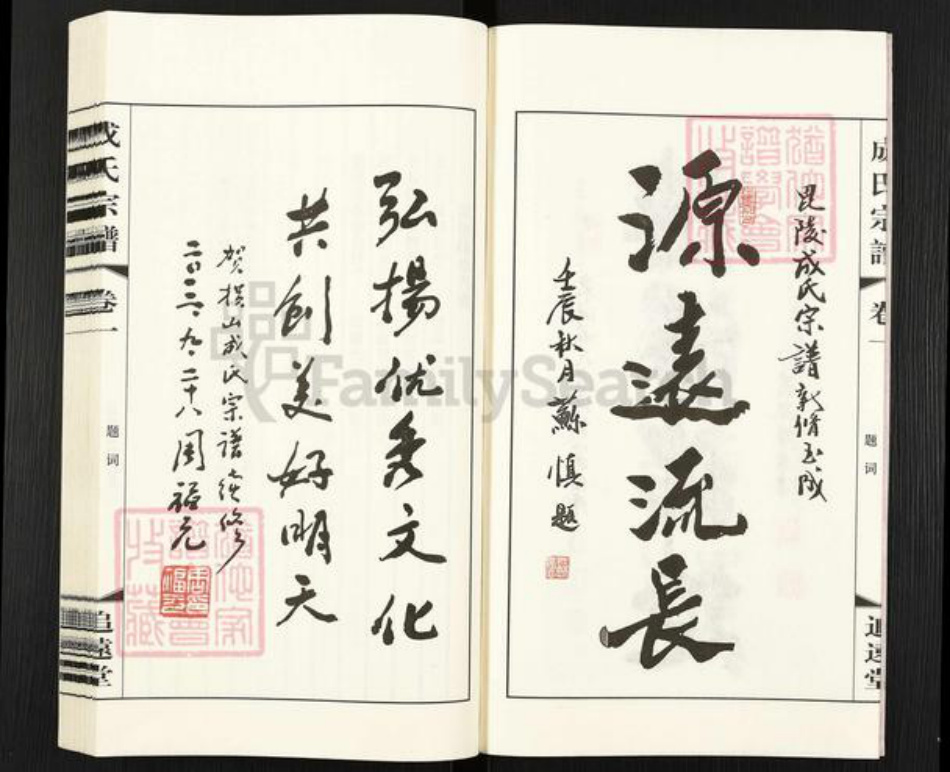 成氏宗譜 卷一 题词 追遠堂
毘陵成氏宗譜新修玉成
源遠流長
壬辰秋月蘇慎題
弘揚优秀文化
共创美好明天
贺横山成氏宗谱续修
二〇一三、九、二十八 周福元
成氏宗譜 卷一 题词 追遠堂
FamilySearch